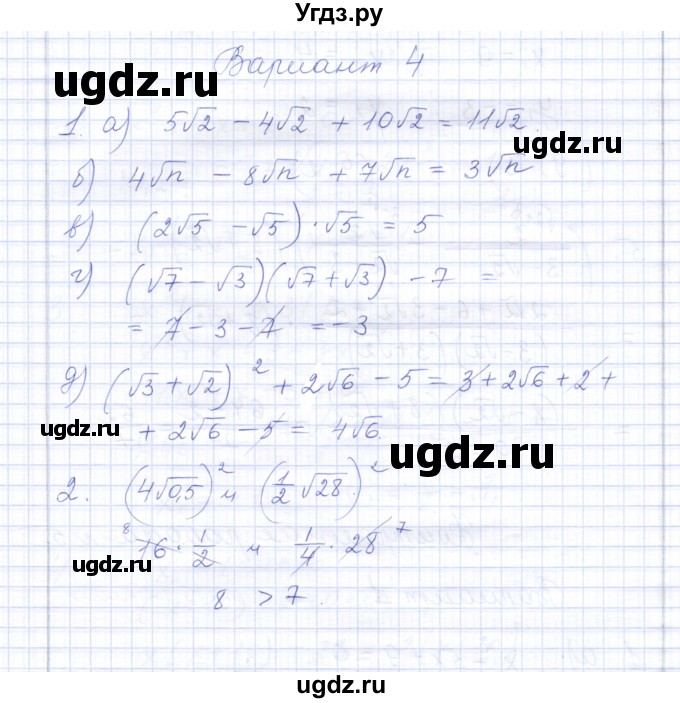 Угдз.ру
Вариант 4
ugdz.ru
1. а) 5√2 − 4√2 + 10√2 = 11√2.
ugdz.ru
б) 4√n − 8√n + 7√n = 3√n
в) (2√5 − √5) · √5 = 5
г) (√7 − √3)(√7 + √3) − 7 =
= 7 − 3 − 7 = −3
д) (√3 + √2)² + 2√6 − 5 = 3 + 2√6 + 2 +
+ 2√6 − 5 = 4√6.
ugdz.ru
ugdz.ru
2. (4√0,5)² и (1/2 √28)²
8 16 · 1/2 и 1/4 · 28 7
ugdz.ru
8 > 7.
ugdz.ru
ugdz.ru